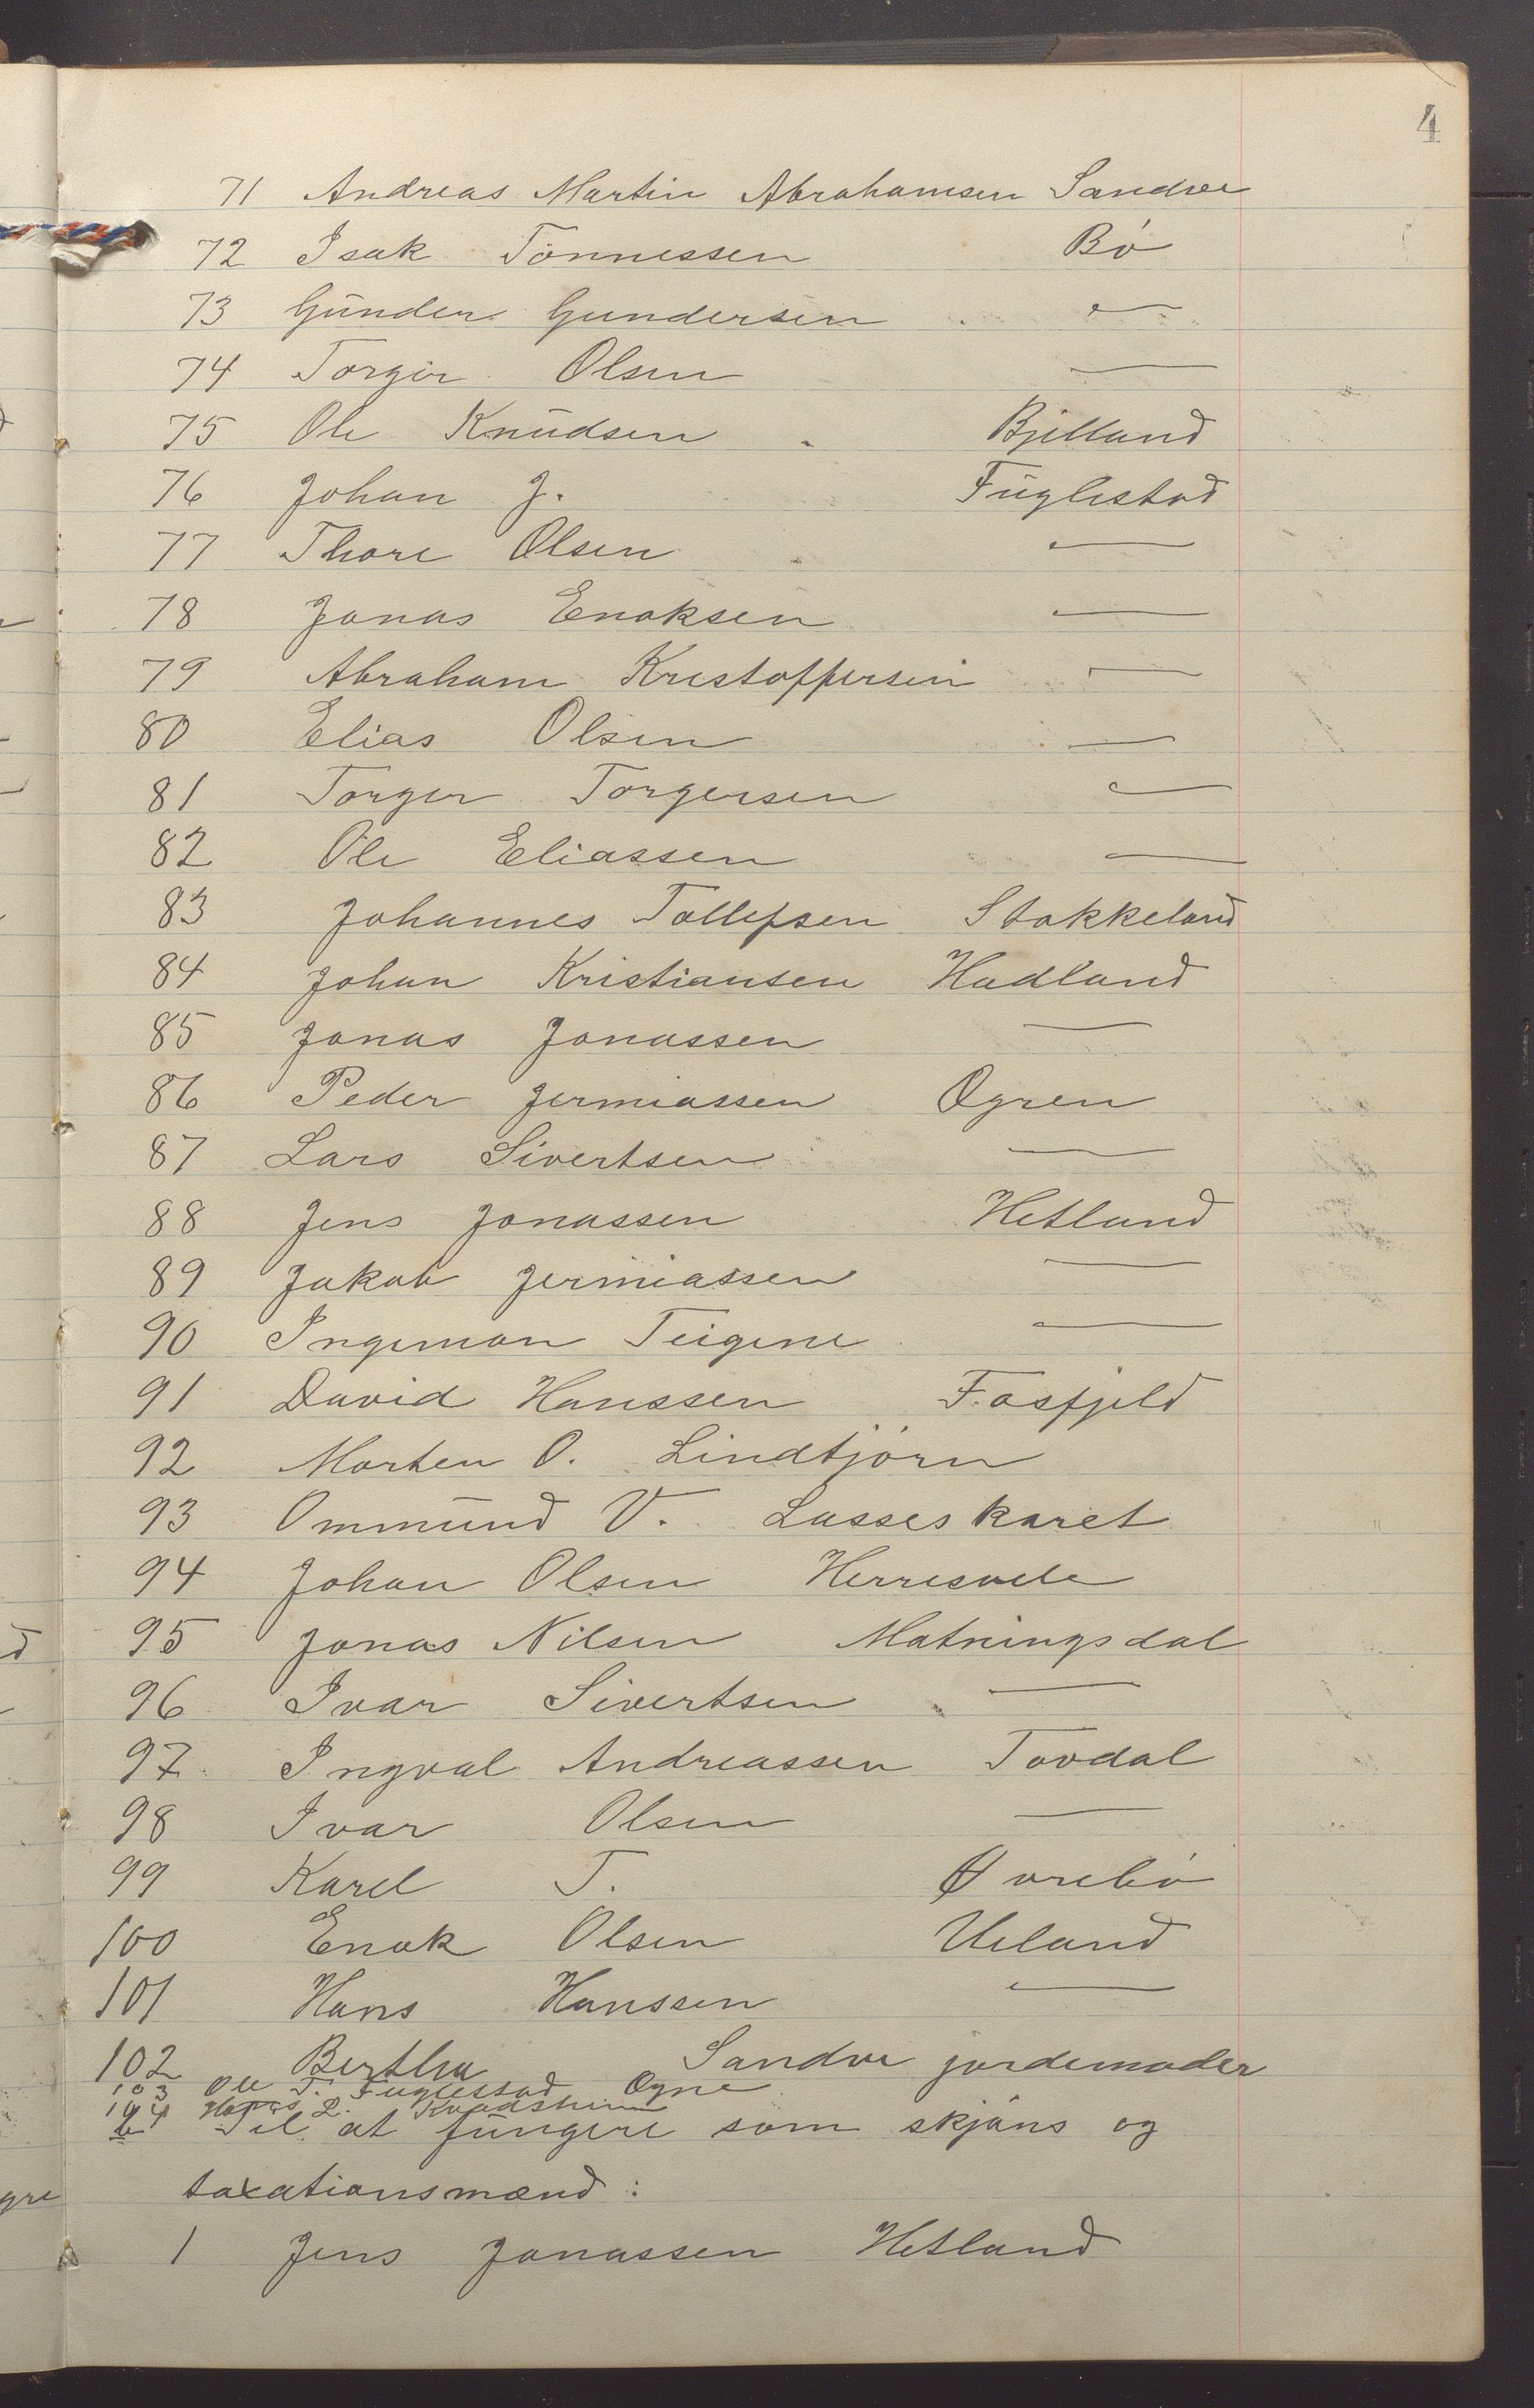 4
71 Andreas Martin Abrahamsen Sandve
72 Isak Tönnessen Bö
73 Gunder Gundersen —
74 Torger Olsen —
75 Ole Knudsen Bjelland
76 Johan J. Fuglestad
77 Thore Olsen —
78 Jonas Enoksen —
79 Abraham Kristoffersen —
80 Elias Olsen —
81 Torger Torgersen —
82 Ole Eliassen —
83 Johannes Tollefsen Stokkeland
84 Johan Kristiansen Hadland
85 Jonas Jonassen —
86 Peder Jermiassen Ogren
87 Lars Sivertsen —
88 Jens Jonassen Hetland
89 Jakob Jermiassen —
90 Ingeman Teigene —
91 David Hanssen Fosfjeld
92 Morten O. Lindtjörn
93 Ommund V. Lasseskaret
94 Johan Olsen Herresvele
95 Jonas Nilsen Matningsdal
96 Ivar Sivertsen —
97 Ingval Andreassen Tovdal
98 Ivar Olsen —
99 Karel T. Øvrebö
100 Enok Olsen Ueland
101 Hans Hanssen —
102 Bertha Sandve jordemoder
103 Ole T. Fuglestad Ogne
104 L. Kvadsheim
b Til at fungere som skjöns og
taxationsmænd:
1 Jens Jonassen Hetland